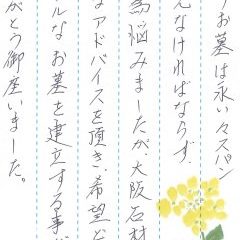 お墓は永い々スパン
えなければならず、
為悩みましたが、大阪石材
なアドバイスを頂き、希望ど
ルなお墓を建立する事が
がとう御座いました。